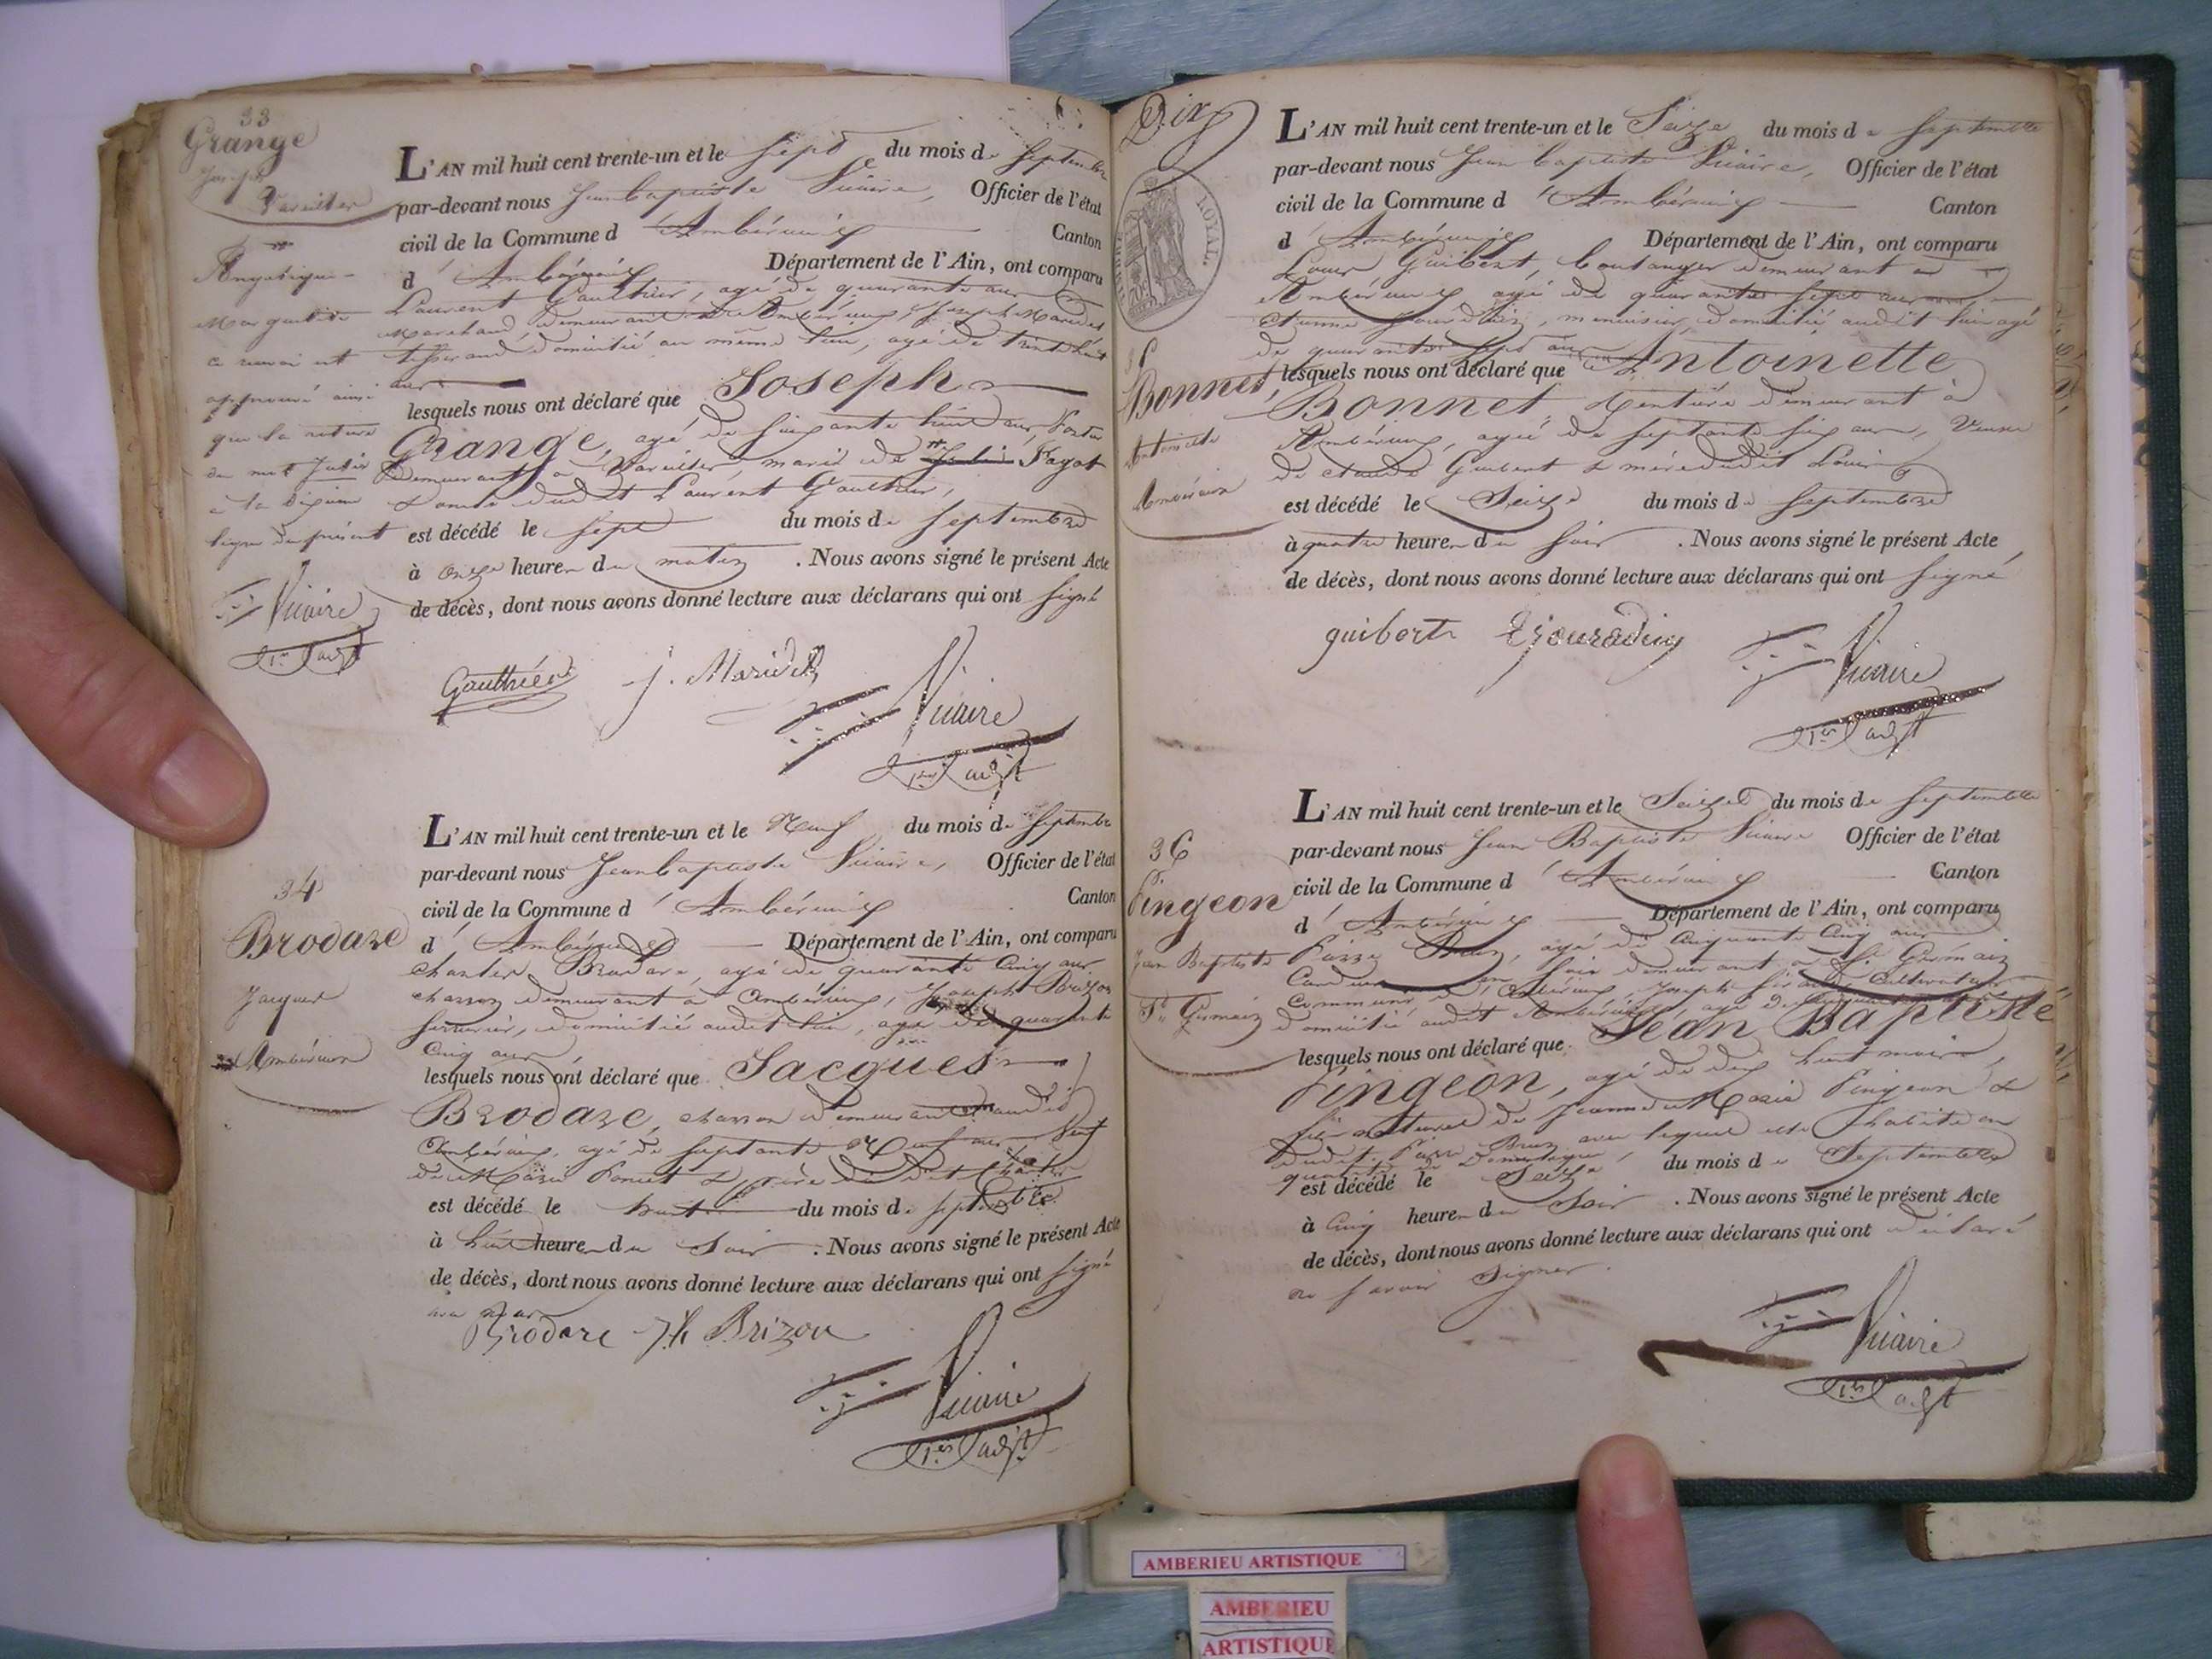 33
Grange
Joseph
Vareilles
Angélique
Marguerite
ce renvoi est
approuvé ainsi
que la rature
du mot Julie
à la dixième
ligne du présent
Vicaire
1er adjt
L'AN mil huit cent trente-un et le sept du mois de septembre
par-devant nous Jean baptiste Vicaire, Officier de l'état
civil de la Commune d'Ambérieux Canton
d'Ambérieux Département de l'Ain, ont comparu
Laurent Gauthier, agé de quarante ans
Marchand, demeurant à Ambérieux, Joseph Maridet
tisserand domicilié au même lieu, agé de trente huit
ans
lesquels nous ont déclaré que Joseph
Grange, agé de soixante huit ans,
demeurant à Vareilles, marié de Julie Fagot
& oncle dudit Laurent Gauthier,
est décédé le sept du mois de septembre
à onze heures du matin. Nous avons signé le présent Acte
de décès, dont nous avons donné lecture aux déclarans qui ont signé
Gauthier J. Maridet
Vicaire
1er adjt
34
Brodare
Jacques
Ambérieux
L'AN mil huit cent trente-un et le Neuf du mois de septembre
par-devant nous Jean baptiste Vicaire, Officier de l'état
civil de la Commune d'Ambérieux Canton
d'Ambérieux Département de l'Ain, ont comparu
Charles Brodare, agé de quarante cinq ans
charron demeurant à Ambérieux, Joseph Brizon
serrurier, domicilié audit lieu, agé de quarante
cinq ans
lesquels nous ont déclaré que Jacques
Brodare, charron demeurant audit
Ambérieux, agé de septante Neuf ans veuf
de Marie Poncet & père dudit Charles
est décédé le huit du mois de septembre
à huit heures du soir. Nous avons signé le présent Acte
de décès, dont nous avons donné lecture aux déclarans qui ont signé
avec nous
Brodare Jh Brizon
Vicaire
1er adjt
Dix
ROYAL.
35
Bonnet,
Antoinette
Ambérieux
L'AN mil huit cent trente-un et le Seize du mois de septembre
par-devant nous Jean baptiste Vicaire, Officier de l'état
civil de la Commune d'Ambérieux Canton
d'Ambérieux Département de l'Ain, ont comparu
Louis Guibert, boulanger demeurant à
Ambérieux agé de quarante sept ans,
Etienne Jourdain, menuisier, domicilié audit lieu agé
de quarante sept ans
lesquels nous ont déclaré que Antoinette
Bonnet, rentière demeurant à
Ambérieux, agée de septante six ans, Veuve
de claude Guibert & mère dudit Louis
est décédé le Seize du mois de septembre
à quatre heures du soir. Nous avons signé le présent Acte
de décès, dont nous avons donné lecture aux déclarans qui ont signé
guibert
Vicaire
1er adjt
36
Pingeon
Jean Baptiste
St Germain
L'AN mil huit cent trente-un et le Seize du mois de septembre
par-devant nous Jean Baptiste Vicaire Officier de l'état
civil de la Commune d'Ambérieux Canton
d'Ambérieux Département de l'Ain, ont comparu
Pierre Brun, agé de Cinquante Cinq ans
demeurant à St Germain
Commune d'Ambérieux, Joseph cultivateur
domicilié audit Ambérieux, agé de
lesquels nous ont déclaré que Jean Baptiste
Pingeon, agé de dix huit mois,
fils naturel de Jeanne Marie Pingeon &
dudit Pierre Brun avec lequel elle habite en
qualité de Domestique,
est décédé le Seize du mois de Septembre
à Cinq heures du Soir. Nous avons signé le présent Acte
de décès, dont nous avons donné lecture aux déclarans qui ont déclaré
ne savoir signer.
Vicaire
1er adjt
AMBERIEU ARTISTIQUE
AMBERIEU
ARTISTIQUE